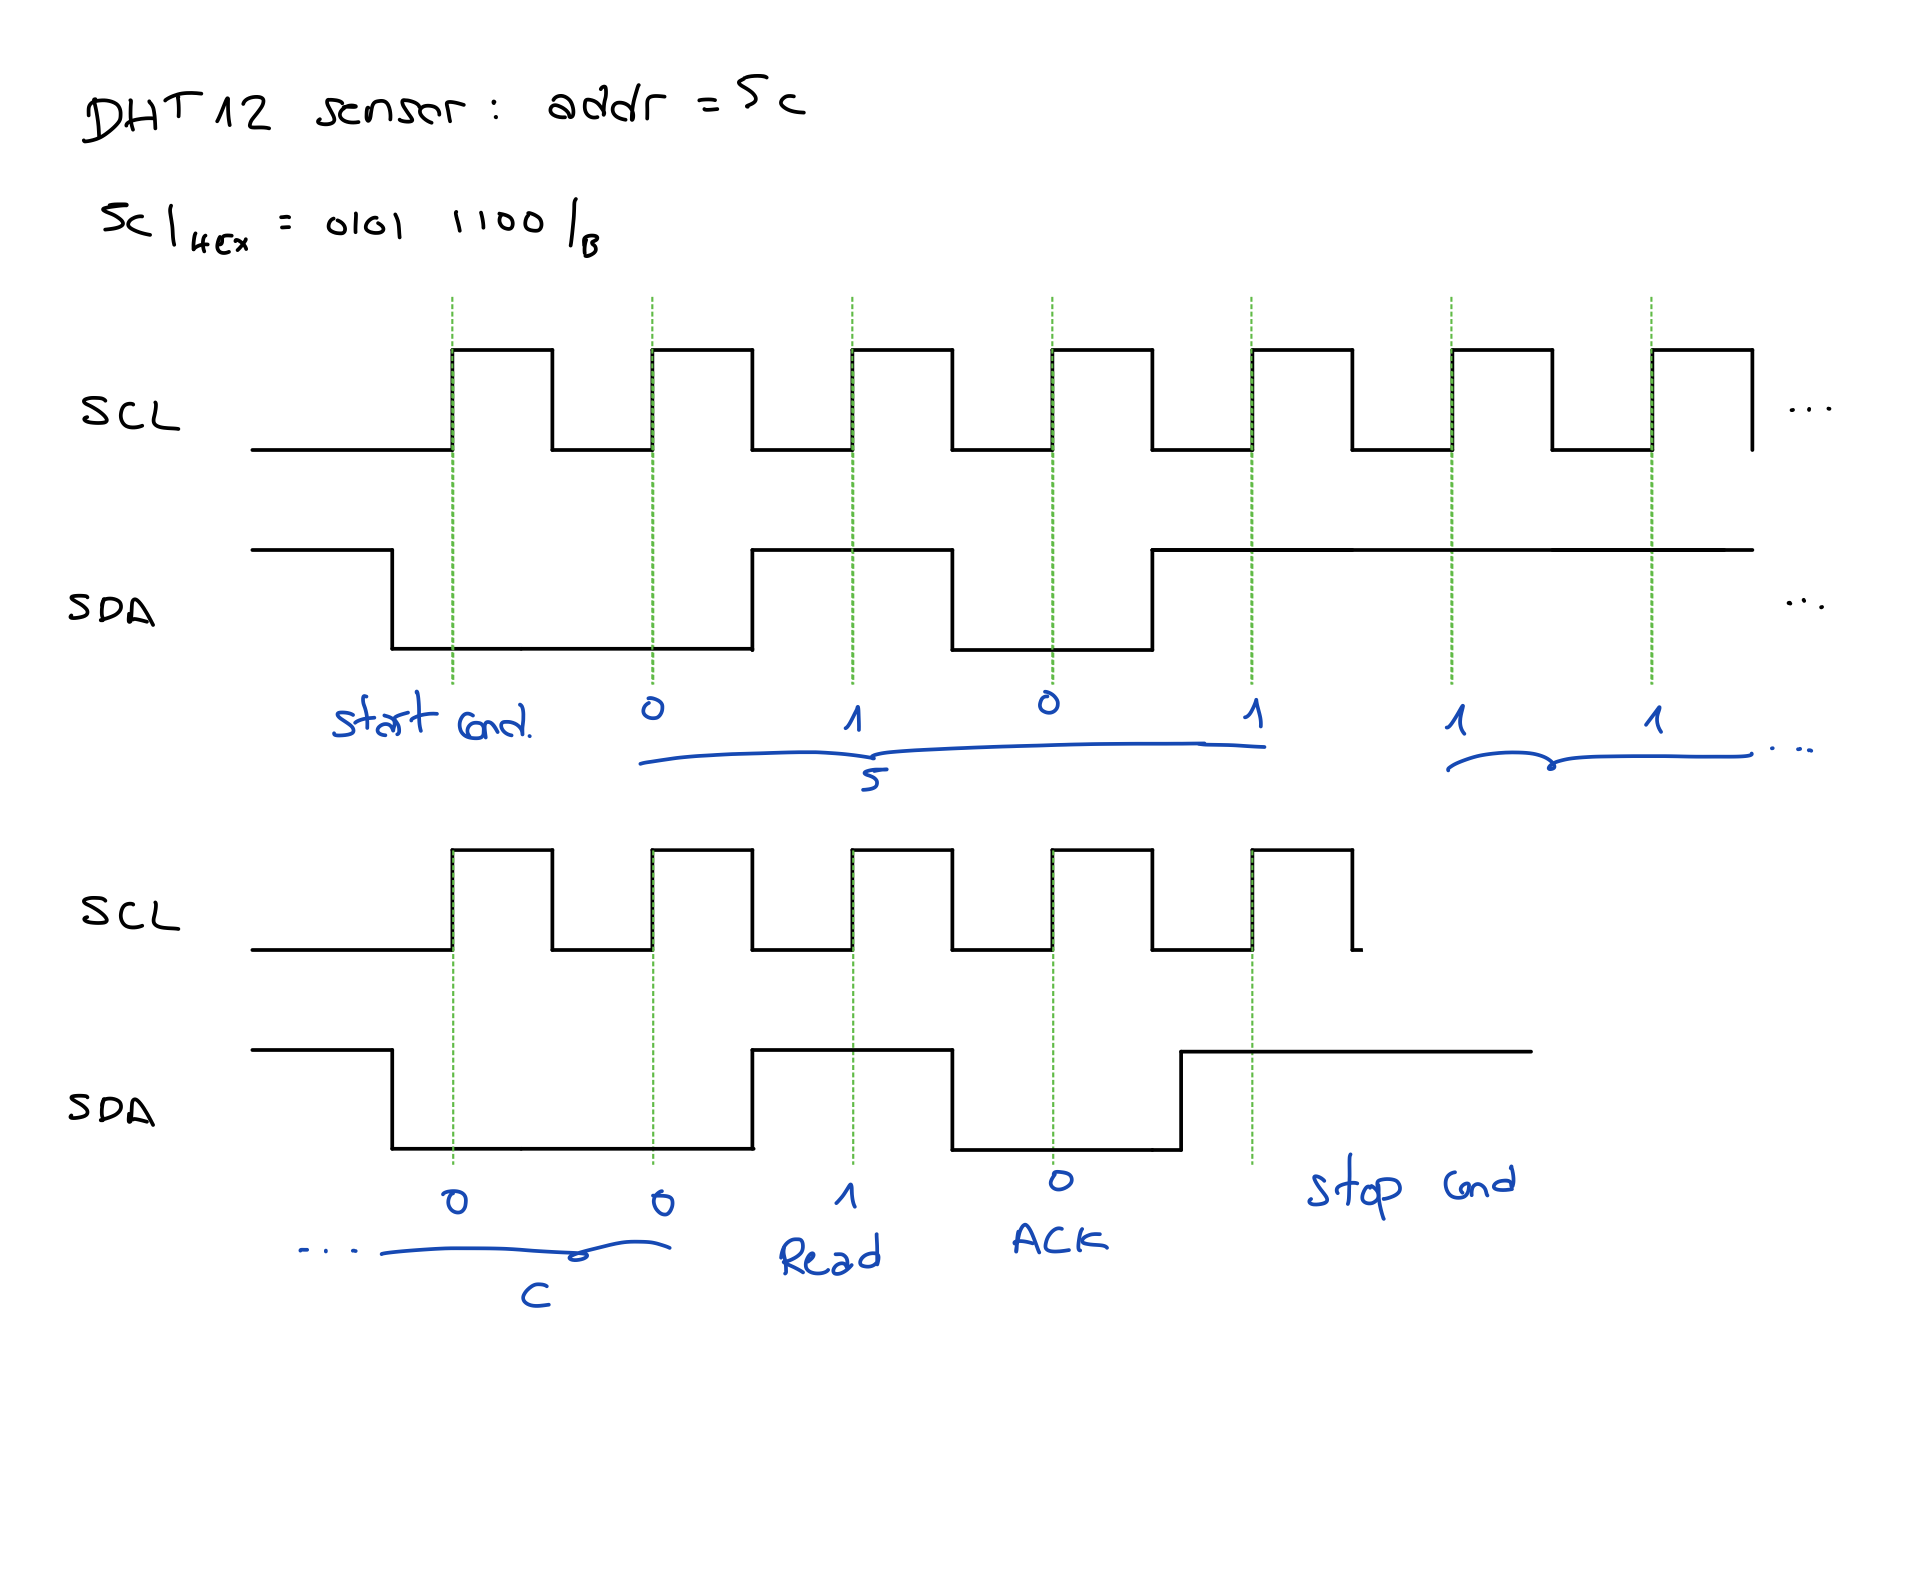 DHT12 sensor: addr = 5c
5c|HEX = 0101 1100|B
SCL ...
SDA ...
start cond. 0 1 0 1 1 1
5 ...
SCL
SDA
0 0 1 0 stop cond
... Read ACK
C